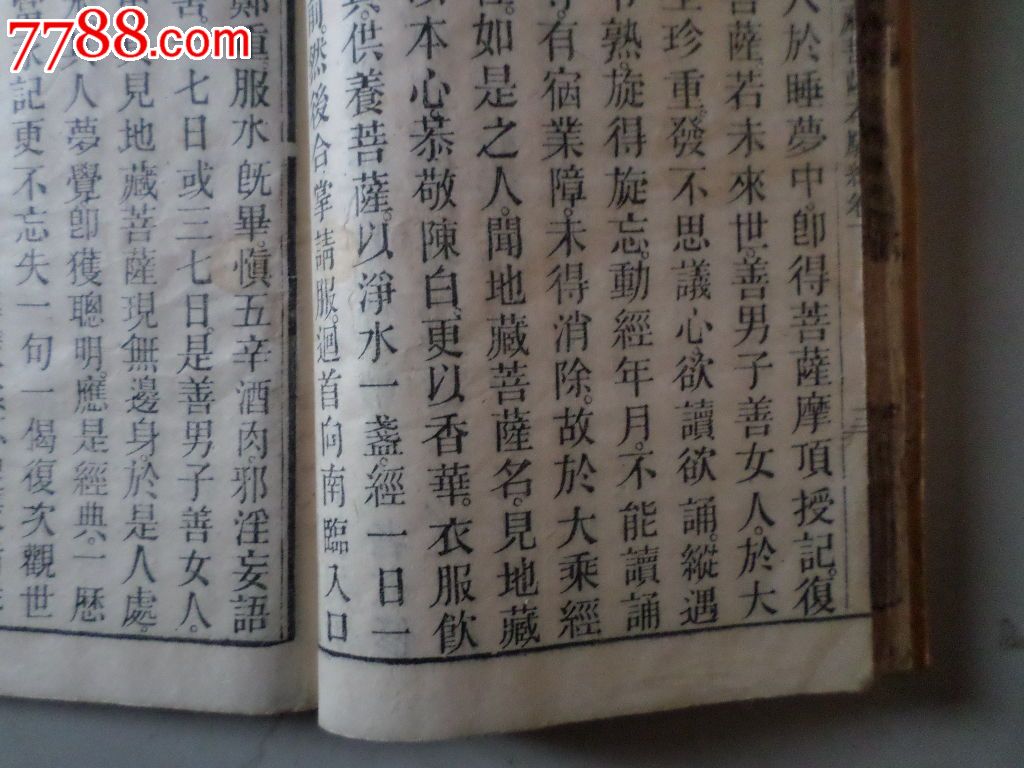 7788.com
人於睡夢中。即得菩薩摩頂授記。復
菩薩。若未來世。善男子善女人。於大
珍重。發不思議心。欲讀欲誦。縱遇
熟。旋得旋忘。動經年月。不能讀誦
有宿業障。未得消除。故於大乘經
如是之人。聞地藏菩薩名。見地藏
本心。恭敬陳白。更以香華。衣服飲
供養菩薩。以淨水一盞。經一日一
然後合掌請服。迴首向南。臨入口
重服水旣畢。慎五辛酒肉。邪淫妄語
七日或三七日。是善男子善女人。
見地藏菩薩現無邊身。於是人處。
人夢覺。卽獲聰明。應是經典。一歷
記更不忘失一句一偈復次觀世